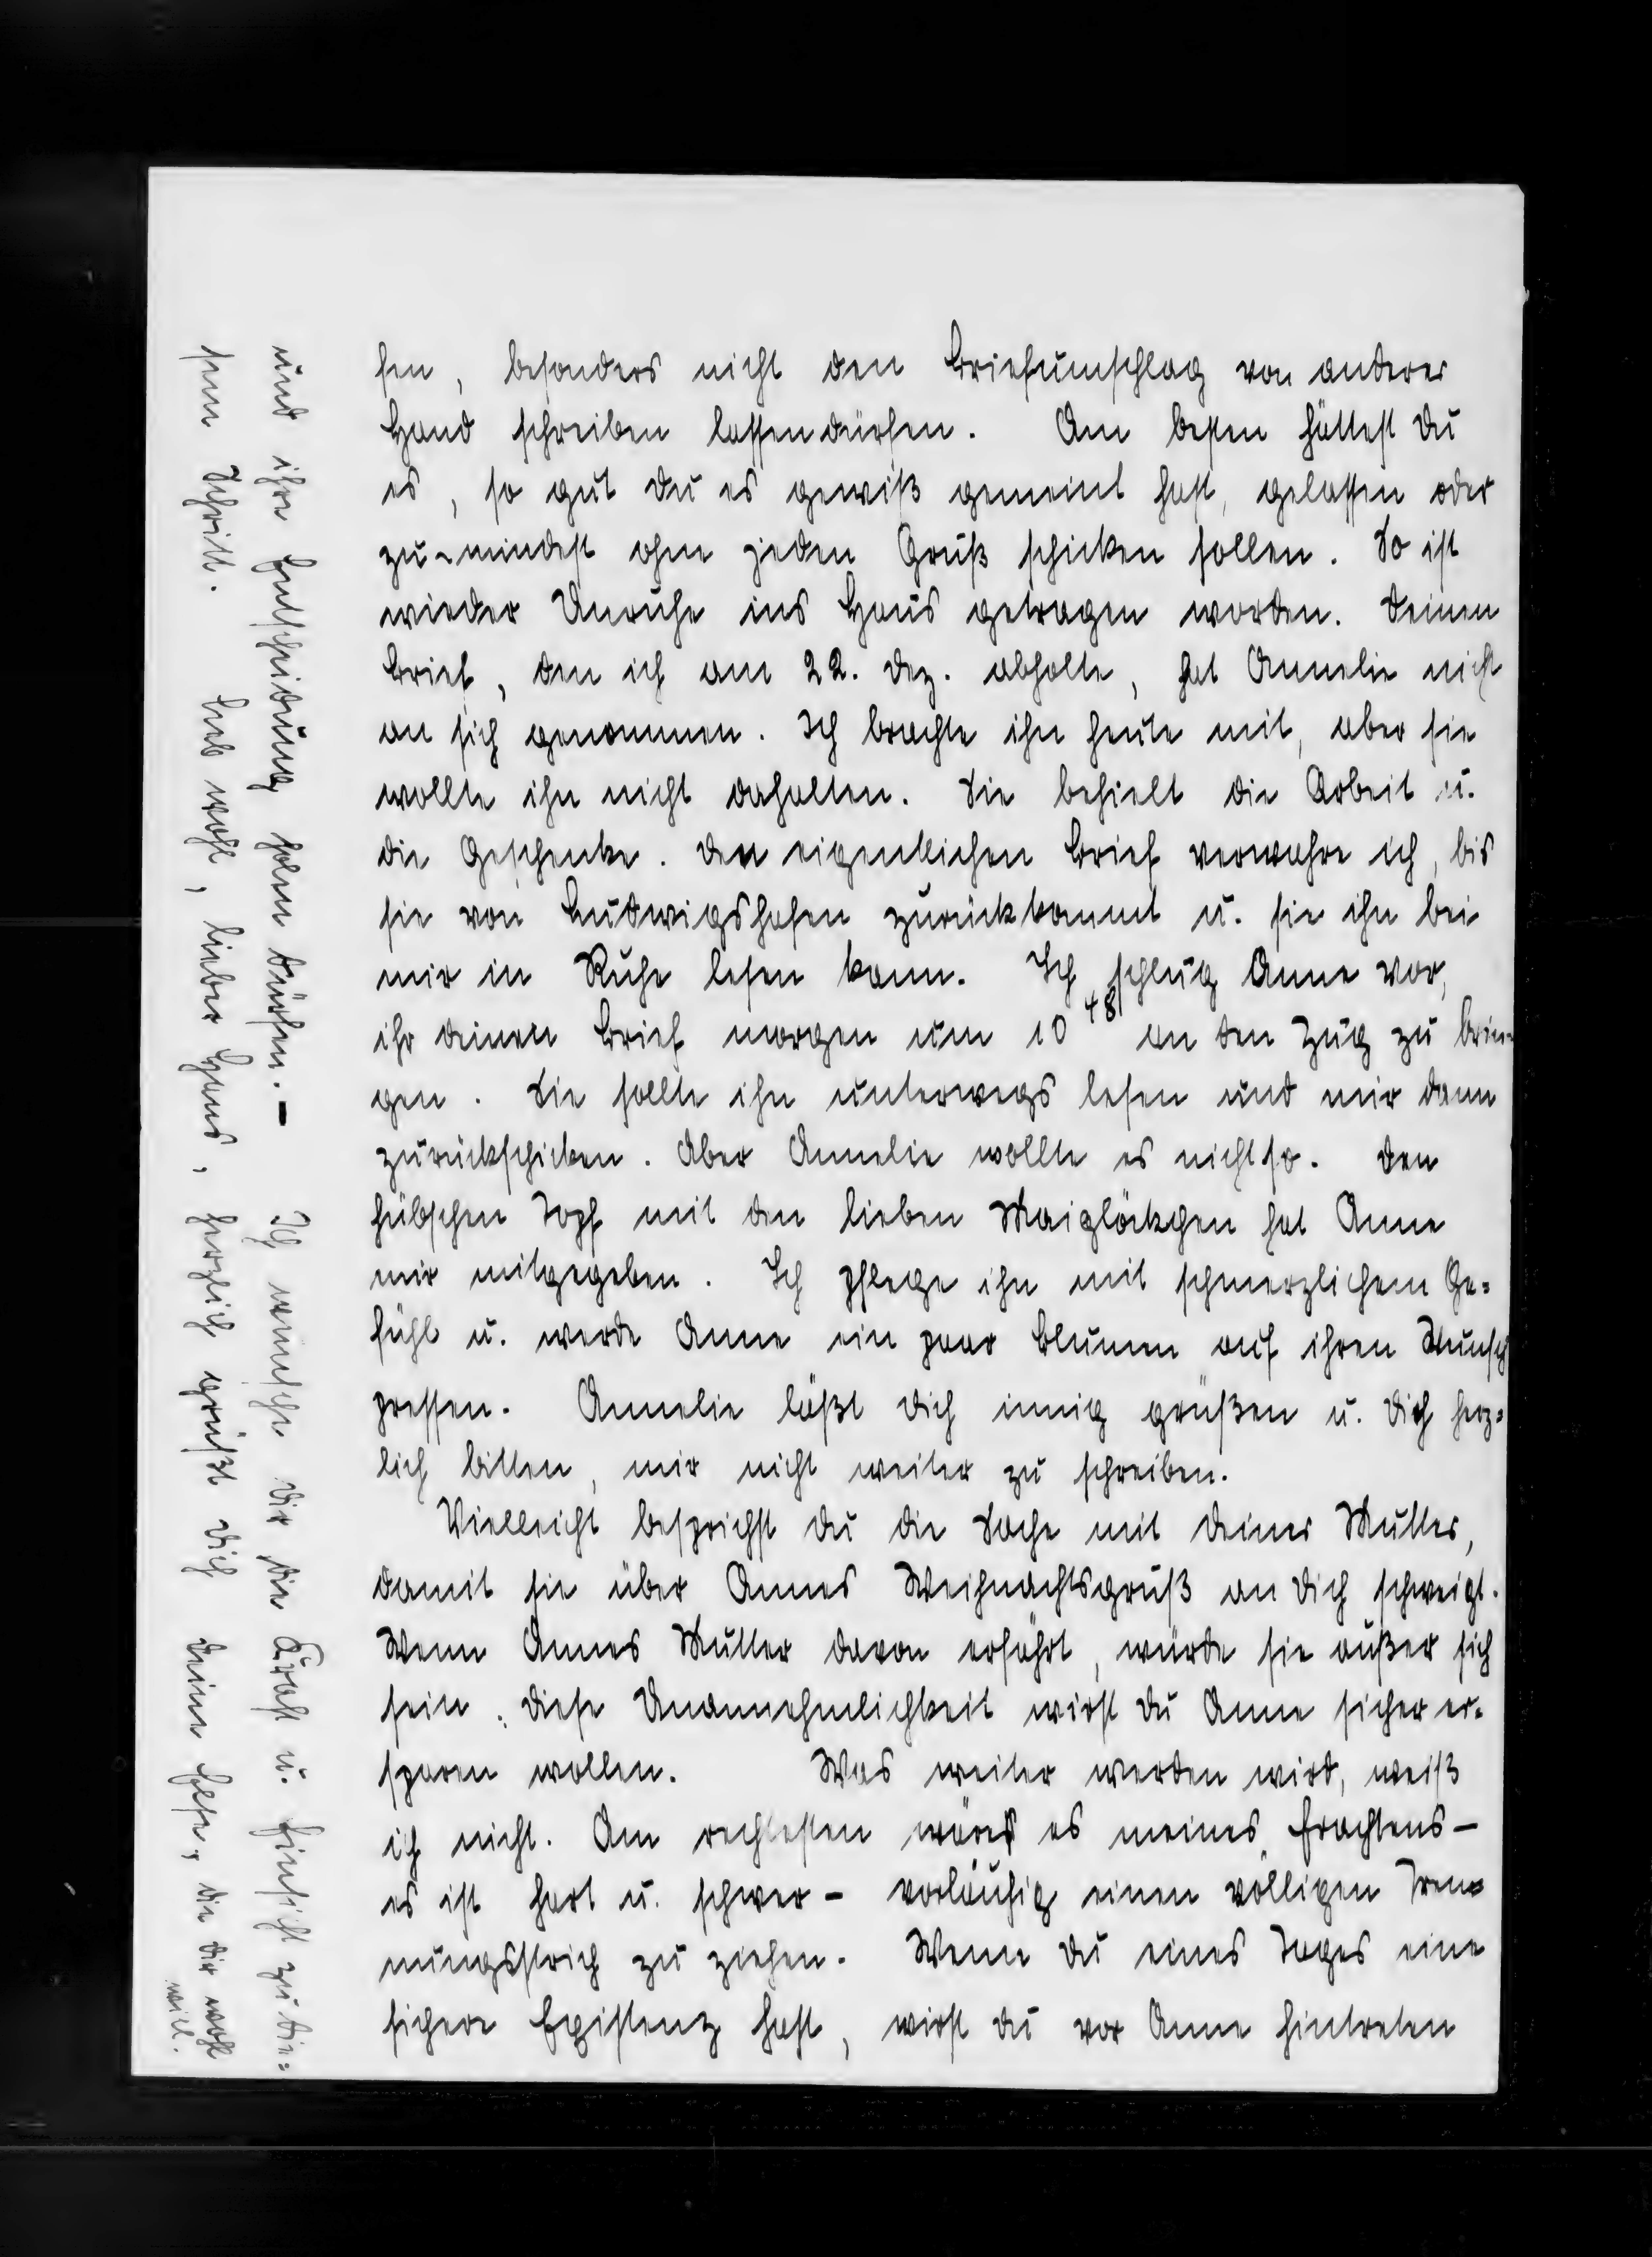 fen, besonders nicht den Briefumschlag von anderer
Hand schreiben lassen dürfen. Am besten hättest Du
es, so gut Du es gewiß gemeint hast, gelassen oder
zu-mindest ohne jeden Gruß schicken sollen. So ist
wieder Unruhe ins Haus getragen worden. Deinen
Brief, den ich am 22. Dez. abholte, hat Annelie nicht
an sich genommen. Ich brachte ihn heute mit, aber sie
wollte ihn nicht dahalten. Sie behielt die Arbeit u.
die Geschenke. Den eigentlichen Brief verwahre ich, bis
sie von Ludwigshafen zurückkommt u. sie ihn bei
mir in Ruhe lesen kann. Ich schlug Anne vor,
ihr deinen Brief morgen um 10 48 an den Zug zu brin-
gen. Sie sollte ihn unterwegs lesen und mir dann
zurückschicken. Aber Annelie wollte es nicht so. Den
hübschen Topf mit den lieben Maiglöckchen hat Anne
mir mitgegeben. Ich pflege ihn mit schmerzlichem Ge=
fühl u. werde Anne ein paar Blumen auf ihren Wunsch
pressen. Annelie läßt Dich innig grüßen u. Dich herz=
lich bitten, mir nicht weiter zu schreiben.
Vielleicht besprichst Du die Sache mit Deiner Mutter,
damit sie über Annes Weihnachtsgruß an Dich schweigt.
Wenn Annes Mutter davon erfährt, würde sie außer sich
sein. Diese Unannehmlichkeit wirst Du Anne sicher er-
sparen wollen. Was weiter werden wird, weiß
ich nicht. Am rechtesten wäre es meines Erachtens –
es ist hart u. schwer – vorläufig einen völligen Tren=
nungsstrich zu ziehen. Wenn Du eines Tages eine
sichere Existenz hast, wirst Du vor Anne hintreten
und ihre Entscheidung holen dürfen. – Ich wünsche Dir die Kraft u. Einsicht zu die=
sem Schritt. Leb wohl, lieber Hans, herzlich grüßt Dich Deine Hese, die Dir wohl
will.